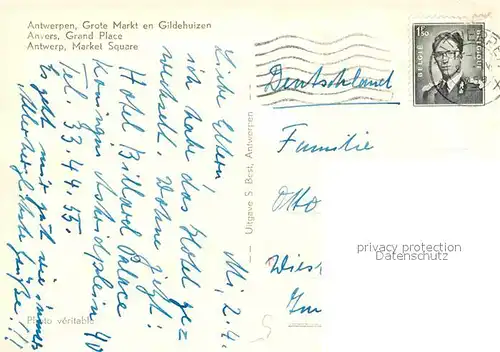 Antwerpen, Grote Markt en Gildehuizen
Anvers, Grand Place
Antwerp, Market Square
Mi, 2.4.
Liebe Eltern!
ich habe das Hotel ge=
wechselt. Wohne jetzt:
Hotel Billard Palace
Koningin Astridplein 40
Tel. 33.44.55.
Es geht mir gut wie immer
Allerherzlichste Grüße!!!
Photo véritable
Uitgave S. Best, Antwerpen
1F50
BELGIE
BELGIQUE
Deutschland
Familie
Otto
Wies
privacy protection
www.ansichtskarten-center.de